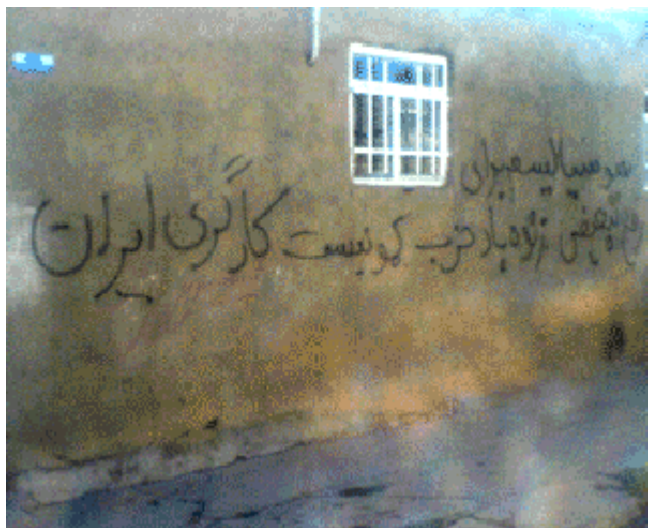 سوسیالیسم برای
رفع تبعیض زنده باد حزب کمونیست کارگری ایران